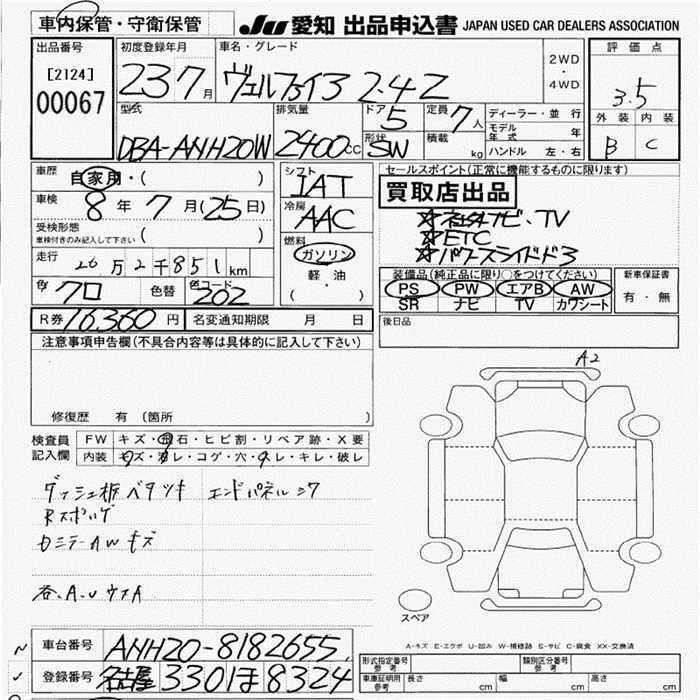 車内保管・守衛保管
JU 愛知 出品申込書 JAPAN USED CAR DEALERS ASSOCIATION
出品番号 初度登録年月 車名・グレード 評価点
[2124] 23 7月 ヴェルファイ3 2.4Z 2WD・4WD 3.5
00067 型式 排気量 ドア 5 定員 7人 ディーラー・並行 外装 内装
モデル年式 年
DBA-ANH20W 2400cc 形状 SW 積載 kg ハンドル 左・右 B C
車歴 自家用・( ) シフト IAT セールスポイント(正常に機能するものに限ります)
車検 8年 7月(25日) 冷房 AAC 買取店出品
受検形態 ( ) ☆社外ナビ、TV
車検付きのみ記入して下さい 燃料 ☆ETC
走行 26万2千851km ガソリン ☆パワースライドド3
軽油 装備品(純正品に限り○をつけてください) 新車保証書
色 クロ 色替 色コード 202 ( ・ ) PS PW エアB AW 有・無
SR ナビ TV カワシート
R券 16,360円 名変通知期限 月 日 後日品
注意事項申告欄(不具合内容等は具体的に記入して下さい)
A2
修復歴 有 (箇所 )
検査員 FW キズ・飛石・ヒビ割・リペア跡・X要
記入欄 内装 キズ・ヨゴレ・コゲ・穴・スレ・キレ・破レ
ダッシュ板ベタツキ エンドパネルシワ
Rスポハゲ
カニラーAWキズ
各、A、Uウスア
スペア
A-キズ E-エクボ U-凹み W-補修跡 S-サビ C-腐食 XX-交換済
車台番号 ANH20-8182655 形式指定番号 参考 類別区分番号 参考
登録番号 名古屋 330 ほ 8324 車庫証明用 参考 長さ cm 幅 cm 高さ cm